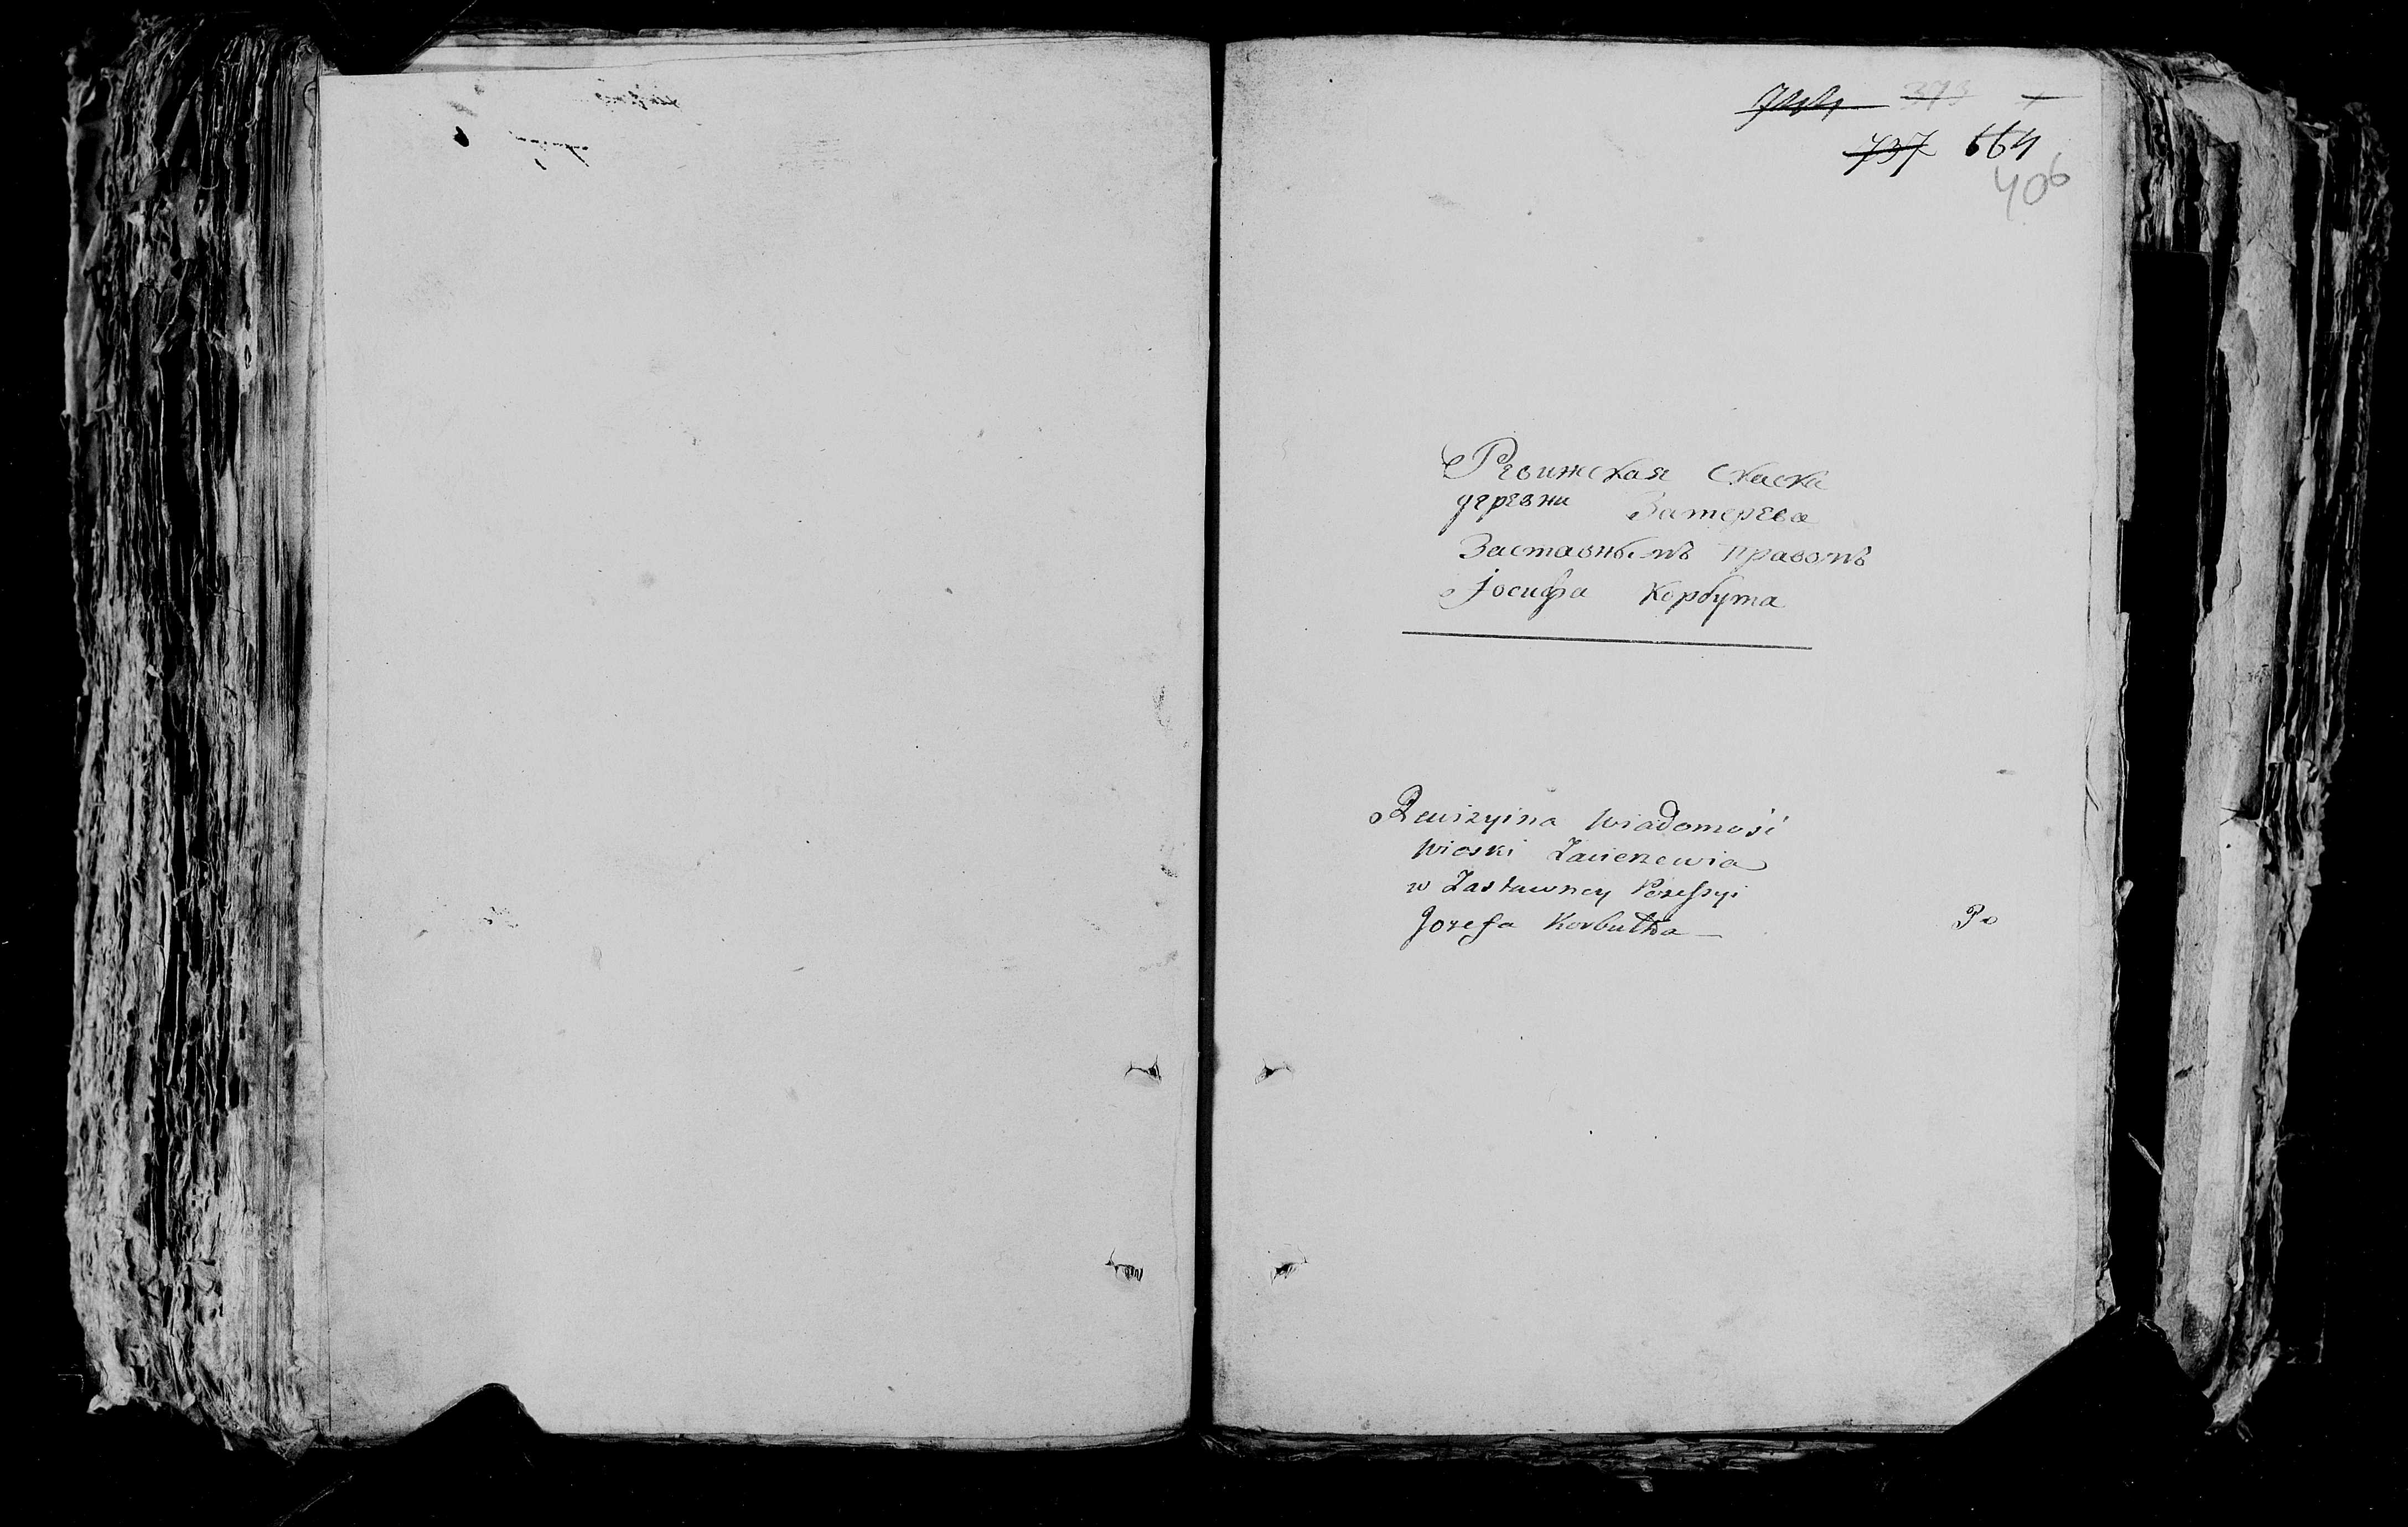 373
737 664
406
Ревижская скаска
деревни Затерева
Заставнымъ правомъ
Іосифа Корбута
Rewizyina Wiadomość
Wioski Zacierzewia
w Zastawney Possessyi
Jozefa Korbutta